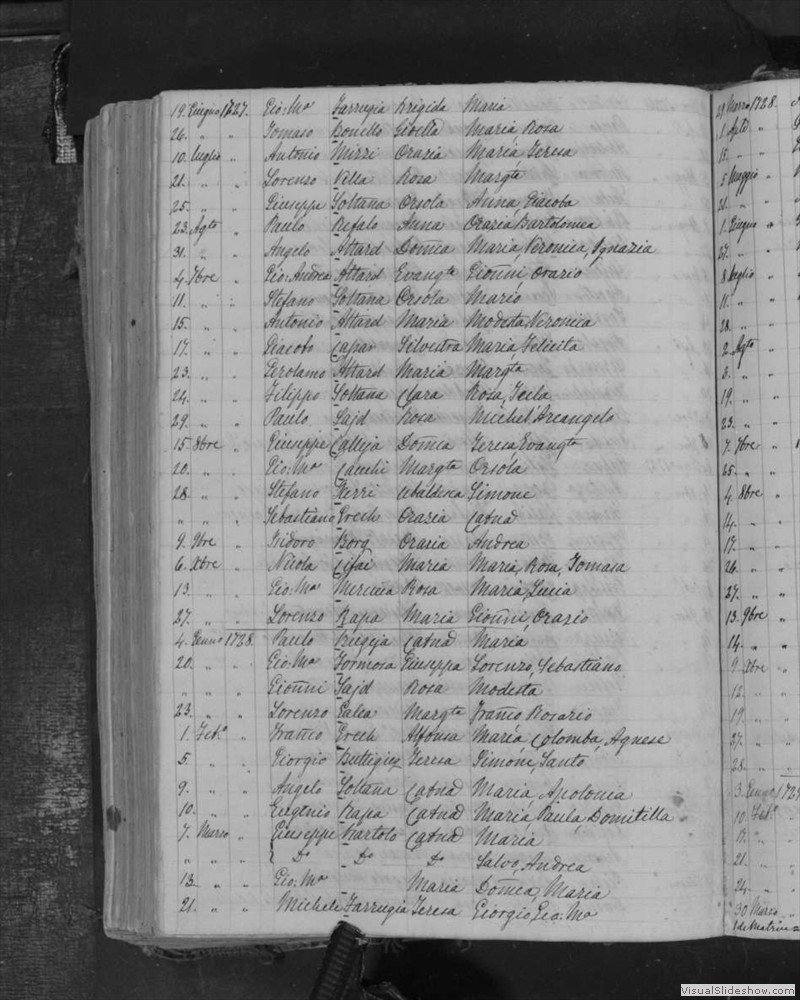 19. Giugno 1727. Gio: Mᵃ Farrugia Brigida Maria
26. " " Tomaso Bonello Gioella Maria, Rosa
10. Luglio " Antonio Mizzi Orazia Maria, Teresa
21. " " Lorenzo Vella Rosa Margᵗᵃ
25. " " Giuseppe Soltana Orsola Anna, Giacoba
23. Agᵗᵒ " Paulo Refalo Anna Orazia Bartolomea
31. " " Angelo Attard Domᶜᵃ Maria, Veronica, Ignazia
4. 7bre " Gio: Andrea Attard Evangᵗᵃ Gionni, Orazio
11. " " Stefano Soltana Orsola Mario
15. " " Antonio Attard Maria Modesta, Veronica
17. " " Giacobo Capar Silvestra Maria, Felicita
23. " " Gerolamo Attard Maria Margᵗᵃ
24. " " Filippo Soltana Clara Rosa, Tecla
29. " " Paulo Sajd Rosa Michel' Arcangelo
15. 8bre " Giuseppe Calleja Domᶜᵃ Teresa, Evangᵗᵃ
20. " " Gio: Mᵃ Margᵗᵃ Orsola
28. " " Stefano Xerri Ubaldesca Simone
" " " Sebastiano Grech Orazia Catnᵃ
9. 9bre " Isidoro Borg Orazia Andrea
6. Xbre " Nicola Cifai Maria Maria, Rosa, Tomasa
13. " " Gio: Mᵃ Mercieca Rosa Maria, Lucia
27. " " Lorenzo Rapa Maria Gionni, Orazio
4. Genno 1728. Paulo Bugeja Catnᵃ Maria
20. " " Gio: Mᵃ Formosa Giuseppa Lorenzo, Sebastiano
" " " Gionni Sajd Rosa Modesta
23. " " Lorenzo Galea Margᵗᵃ Franᶜᵒ Rosario
1. Febᵒ " Franᶜᵒ Grech Alfonsa Maria, Colomba, Agnese
5. " " Giorgio Buttigieg Teresa Simone, Santo
9. " " Angelo Soltana Catnᵃ Maria, Apolonia
10. " " Eugenio Rapa Catnᵃ Maria, Paula, Domitilla
7. Marzo " Giuseppe Bartolo Catnᵃ Maria
" " " { Dᵒ Dᵒ Dᵒ Salvᵒ, Andrea
13. " " Gio: Mᵃ Maria Domᶜᵃ, Maria
21. " " Michele Farrugia Teresa Giorgio, Gio: Mᵃ
29 Marzo 1728.
1. Aple "
15. " "
5. Maggio "
21. " "
1. Giugno "
27. " "
8. Luglio "
11. " "
28. " "
2. Agᵗᵒ "
3. " "
19. " "
23. " "
7. 7bre "
25. " "
4. 8bre "
14. " "
17. " "
26. " "
27. " "
13. 9bre "
14. " "
9. Xbre "
12. " "
19. " "
27. " "
28. " "
3. Genno 172
10. Febᵒ "
17. " "
21. " "
24. " "
30 Marzo "
VisualSlideshow.com